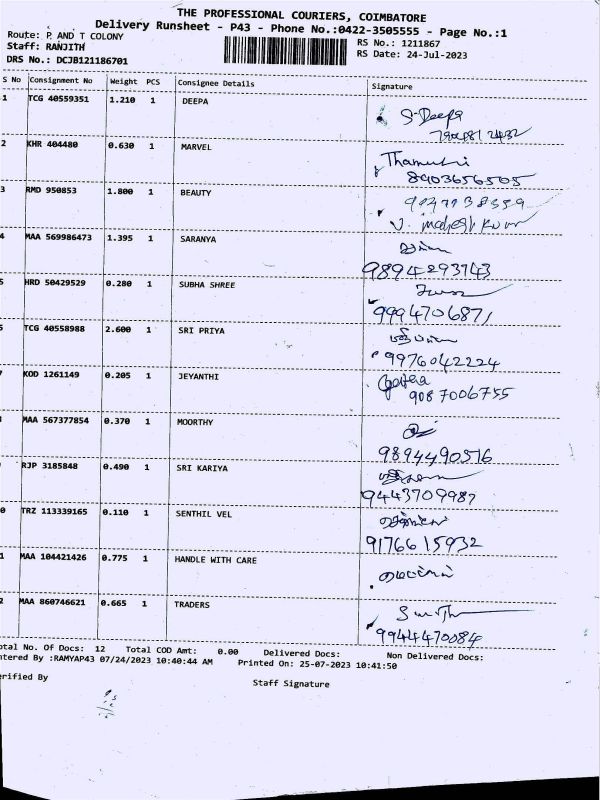 THE PROFESSIONAL COURIERS, COIMBATORE
Delivery Runsheet - P43 - Phone No.:0422-3505555 - Page No.:1
Route: P. AND T COLONY
RS No.: 1211867
Staff: RANJITH
RS Date: 24-Jul-2023
DRS No.: DCJB121186701
S No Consignment No Weight PCS Consignee Details Signature
1 TCG 40559351 1.210 1 DEEPA S-Deepa
2 KHR 404480 0.630 1 MARVEL
8903656505
3 RMD 950853 1.800 1 BEAUTY
4 MAA 569986473 1.395 1 SARANYA
9894293743
5 HRD 50429529 0.280 1 SUBHA SHREE
9994706871
TCG 40558988 2.600 1 SRI PRIYA
9976042224
KOD 1261149 0.205 1 JEYANTHI Geetha
9087006755
MAA 567377854 0.370 1 MOORTHY
9894490516
RJP 3185848 0.490 1 SRI KARIYA
9443709987
0 TRZ 113339165 0.110 1 SENTHIL VEL
9176615932
1 MAA 104421426 0.775 1 HANDLE WITH CARE
2 MAA 860746621 0.665 1 TRADERS
9944470084
otal No. Of Docs: 12 Total COD Amt: 0.00 Delivered Docs: Non Delivered Docs:
ntered By :RAMYAP43 07/24/2023 10:40:44 AM Printed On: 25-07-2023 10:41:50
erified By
Staff Signature